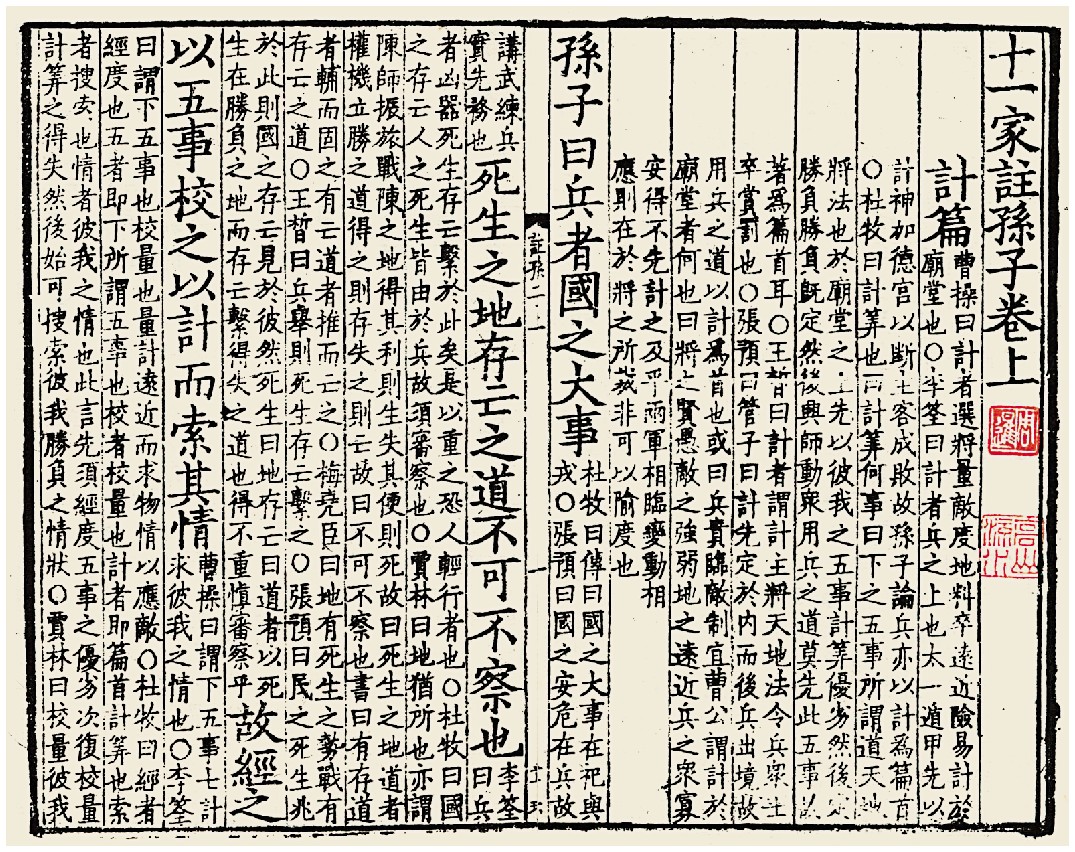 十一家註孫子卷上
計篇
曹操曰計者選將量敵度地料卒遠近險易計於
廟堂也○李筌曰計者兵之上也太一遁甲先以
計神加德宮以斷主客成敗故孫子論兵亦以計爲篇首
○杜牧曰計算也曰計算何事曰下之五事所謂道天地
將法也於廟堂之上先以彼我之五事計算優劣然後定
勝負勝負既定然後興師動衆用兵之道莫先此五事故
著爲篇首耳○王晳曰計者謂計主將天地法令兵衆士
卒賞罰也○張預曰管子曰計先定於内而後兵出境故
用兵之道以計爲首也或曰兵貴臨敵制宜曹公謂計於
廟堂者何也曰將之賢愚敵之強弱地之遠近兵之衆寡
安得不先計之及乎兩軍相臨變動相
應則在於將之所裁非可以隃度也
孫子曰兵者國之大事
杜牧曰傳曰國之大事在祀與
戎○張預曰國之安危在兵故
講武練兵
實先務也
死生之地存亡之道不可不察也
李筌
曰兵
者凶器死生存亡繫於此矣是以重之恐人輕行者也○杜牧曰國
之存亡人之死生皆由於兵故須審察也○賈林曰地猶所也亦謂
陳師振旅戰陳之地得其利則生失其便則死故曰死生之地道者
權機立勝之道得之則存失之則亡故曰不可不察也書曰有存道
者輔而固之有亡道者推而亡之○梅堯臣曰地有死生之勢戰有
存亡之道○王晳曰兵舉則死生存亡繫之○張預曰民之死生兆
於此則國之存亡見於彼然死生曰地存亡曰道者以死
生在勝負之地而存亡繫得失之道也得不重慎審察乎
故經之
以五事校之以計而索其情
曹操曰謂下五事七計
求彼我之情也○李筌
曰謂下五事也校量也量計遠近而求物情以應敵○杜牧曰經者
經度也五者即下所謂五事也校者校量也計者即篇首計算也索
者搜索也情者彼我之情也此言先須經度五事之優劣次復校量
計算之得失然後始可搜索彼我勝負之情狀○賈林曰校量彼我